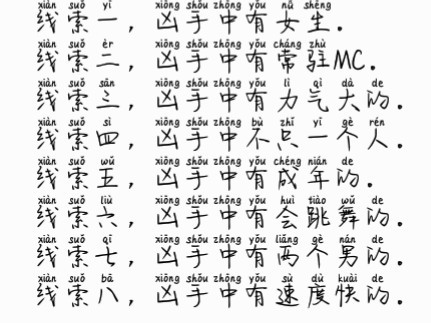 xiàn suǒ yī xiōng shǒu zhōng yǒu nǚ shēng
线索一，凶手中有女生.
xiàn suǒ èr xiōng shǒu zhōng yǒu cháng zhù
线索二，凶手中有常驻MC.
xiàn suǒ sān xiōng shǒu zhōng yǒu lì qì dà de
线索三，凶手中有力气大的.
xiàn suǒ sì xiōng shǒu zhōng bù zhǐ yī gè rén
线索四，凶手中不只一个人.
xiàn suǒ wǔ xiōng shǒu zhōng yǒu chéng nián de
线索五，凶手中有成年的.
xiàn suǒ liù xiōng shǒu zhōng yǒu huì tiào wǔ de
线索六，凶手中有会跳舞的.
xiàn suǒ qī xiōng shǒu zhōng yǒu liǎng gè nán de
线索七，凶手中有两个男的.
xiàn suǒ bā xiōng shǒu zhōng yǒu sù dù kuài de
线索八，凶手中有速度快的.